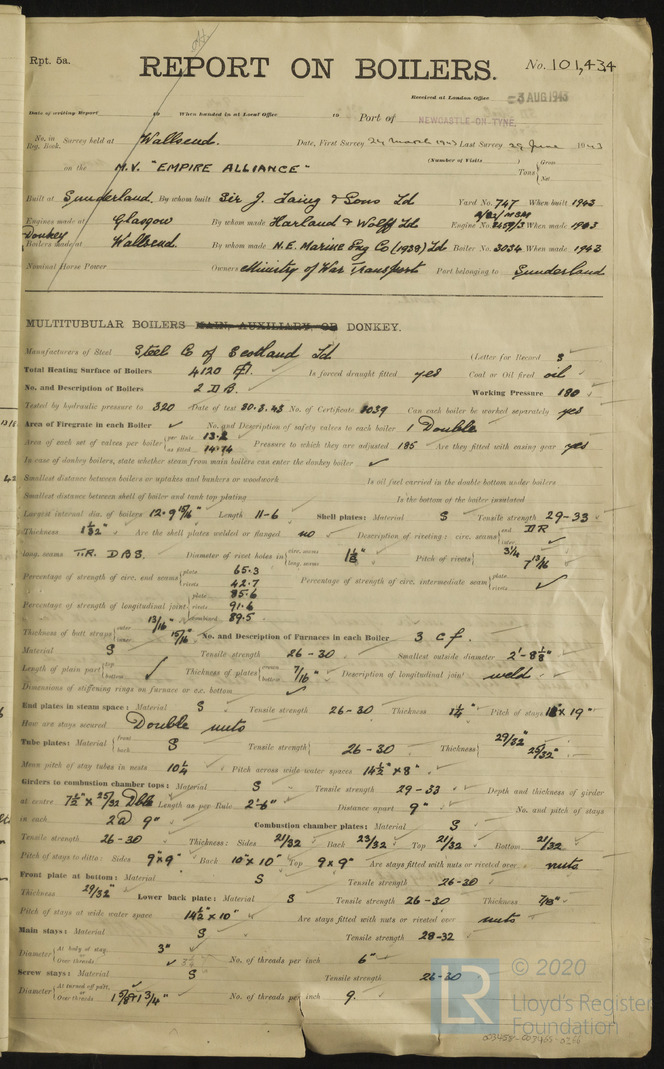 Rpt. 5a.
REPORT ON BOILERS.
No. 101,434
Received at London Office 3 AUG 1943
Date of writing Report 19 When handed in at Local Office 19 Port of NEWCASTLE-ON-TYNE.
No. in Reg. Book. Survey held at Wallsend. Date, First Survey 24 March 1943 Last Survey 29 June 1943
(Number of Visits )
on the M.V. "EMPIRE ALLIANCE" Tons { Gross Net
Built at Sunderland. By whom built Sir J. Laing & Sons Ld Yard No. 747 When built 1943
Engines made at Glasgow By whom made Harland & Wolff Ld Engine No. When made 1943
Donkey Boilers made at Wallsend. By whom made N.E. Marine Eng Co (1938) Ld Boiler No. 3034 When made 1943
Nominal Horse Power Owners Ministry of War Transport Port belonging to Sunderland
MULTITUBULAR BOILERS MAIN, AUXILIARY, OR DONKEY.
Manufacturers of Steel Steel Co of Scotland Ld (Letter for Record S
Total Heating Surface of Boilers 4120 Is forced draught fitted yes Coal or Oil fired oil
No. and Description of Boilers 2 D B. Working Pressure 180
Tested by hydraulic pressure to 320 Date of test 30.3.43 No. of Certificate 1039 Can each boiler be worked separately yes
Area of Firegrate in each Boiler ✓ No. and Description of safety valves to each boiler 1 Double
Area of each set of valves per boiler { per Rule 13.2 as fitted 14.14 Pressure to which they are adjusted 185 Are they fitted with easing gear yes
In case of donkey boilers, state whether steam from main boilers can enter the donkey boiler ✓
Smallest distance between boilers or uptakes and bunkers or woodwork Is oil fuel carried in the double bottom under boilers
Smallest distance between shell of boiler and tank top plating Is the bottom of the boiler insulated
Largest internal dia. of boilers 12.9 15/16" Length 11-6 Shell plates: Material S Tensile strength 29-33
Thickness 1 1/32" Are the shell plates welded or flanged no Description of riveting: circ. seams { end DR inter.
long. seams T.R. D B S. Diameter of rivet holes in { circ. seams long. seams 1 1/8" Pitch of rivets { 3 1/4 7 13/16
Percentage of strength of circ. end seams { plate 65.3 rivets 42.7 Percentage of strength of circ. intermediate seam { plate rivets ✓
Percentage of strength of longitudinal joint { plate 85.6 rivets 91.6 combined 89.5
Thickness of butt straps { outer 13/16 inner 15/16" No. and Description of Furnaces in each Boiler 3 c f.
Material S Tensile strength 26-30 Smallest outside diameter 2'-8 1/8"
Length of plain part { top bottom ✓ Thickness of plates { crown bottom 7/16" Description of longitudinal joint weld
Dimensions of stiffening rings on furnace or c.c. bottom ✓
End plates in steam space: Material S Tensile strength 26-30 Thickness 1 1/4" Pitch of stays x 19"
How are stays secured Double nuts
Tube plates: Material { front back S Tensile strength { 26-30 Thickness { 29/32" 25/32"
Mean pitch of stay tubes in nests 10 1/4 Pitch across wide water spaces 14 1/2" x 8"
Girders to combustion chamber tops: Material S Tensile strength 29-33 Depth and thickness of girder
at centre 7 1/2" x 25/32 Dble Length as per Rule 2'-6" Distance apart 9" No. and pitch of stays
in each 2 @ 9" Combustion chamber plates: Material S
Tensile strength 26-30 Thickness: Sides 21/32 Back 23/32 Top 21/32 Bottom 21/32
Pitch of stays to ditto: Sides 9"x9" Back 10"x10" Top 9x9" Are stays fitted with nuts or riveted over nuts
Front plate at bottom: Material S Tensile strength 26-30
Thickness 29/32" Lower back plate: Material S Tensile strength 26-30 Thickness 7/8"
Pitch of stays at wide water space 14 1/2" x 10" Are stays fitted with nuts or riveted over nuts
Main stays: Material S Tensile strength 28-32
Diameter { At body of stay, Over threads 3" No. of threads per inch 6"
Screw stays: Material S Tensile strength 26-30
Diameter { At turned off part, Over threads 1 5/8" & 1 3/4" No. of threads per inch 9.
© 2020
Lloyd's Register
Foundation